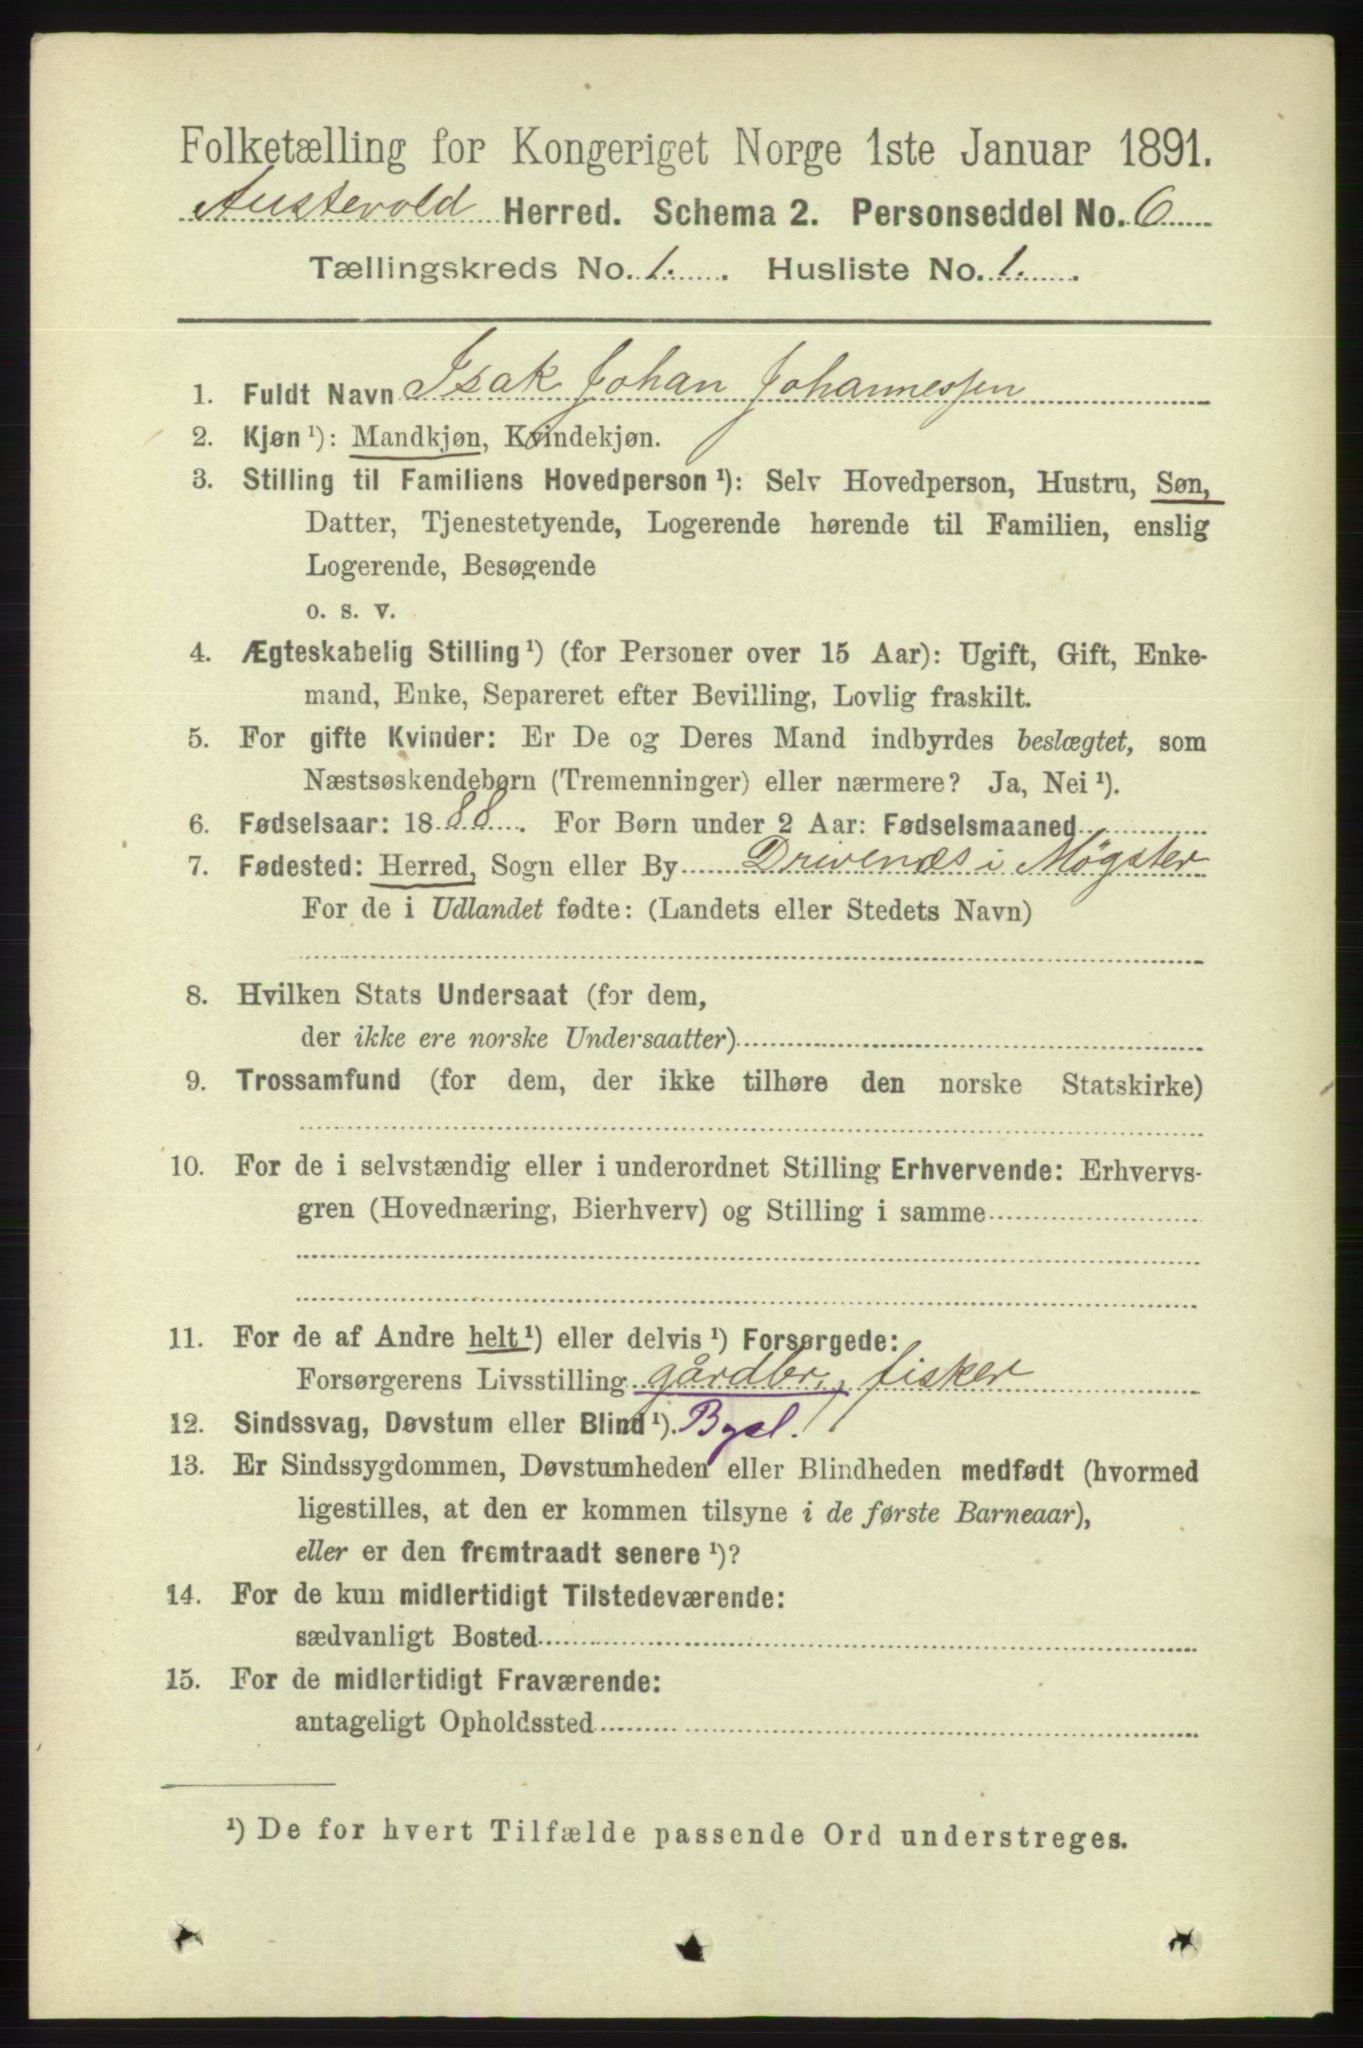 Folketælling for Kongeriget Norge 1ste Januar 1891.
Austevold Herred. Schema 2. Personseddel No. 6
Tællingskreds No. 1. Husliste No. 1.
1. Fuldt Navn Isak Johan Johannessen
2. Kjøn ¹): Mandkjøn, Kvindekjøn.
3. Stilling til Familiens Hovedperson ¹): Selv Hovedperson, Hustru, Søn,
Datter, Tjenestetyende, Logerende hørende til Familien, enslig
Logerende, Besøgende
o. s. v.
4. Ægteskabelig Stilling ¹) (for Personer over 15 Aar): Ugift, Gift, Enke-
mand, Enke, Separeret efter Bevilling, Lovlig fraskilt.
5. For gifte Kvinder: Er De og Deres Mand indbyrdes beslægtet, som
Næstsøskendebørn (Tremenninger) eller nærmere? Ja, Nei ¹).
6. Fødselsaar: 1888. For Børn under 2 Aar: Fødselsmaaned
7. Fødested: Herred, Sogn eller By Drivenæs i Møgster
For de i Udlandet fødte: (Landets eller Stedets Navn)
8. Hvilken Stats Undersaat (for dem,
der ikke ere norske Undersaatter)
9. Trossamfund (for dem, der ikke tilhøre den norske Statskirke)
10. For de i selvstændig eller i underordnet Stilling Erhvervende: Erhvervs-
gren (Hovednæring, Bierhverv) og Stilling i samme
11. For de af Andre helt ¹) eller delvis ¹) Forsørgede:
Forsørgerens Livsstilling gårdbr., fisker
12. Sindssvag, Døvstum eller Blind ¹). Bgsl.
13. Er Sindssygdommen, Døvstumheden eller Blindheden medfødt (hvormed
ligestilles, at den er kommen tilsyne i de første Barneaar),
eller er den fremtraadt senere ¹)?
14. For de kun midlertidigt Tilstedeværende:
sædvanligt Bosted
15. For de midlertidigt Fraværende:
antageligt Opholdssted
¹) De for hvert Tilfælde passende Ord understreges.